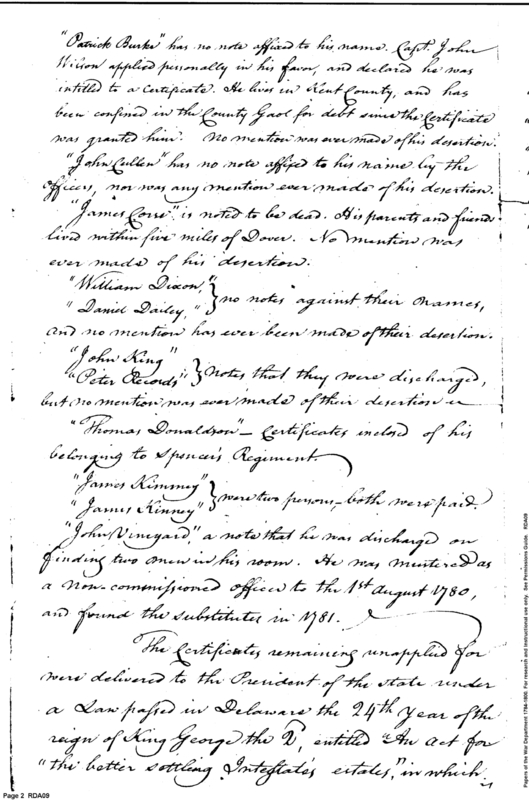 "Patrick Burke" has no note affixed to his name. Capt. John
Wilson applied personally in his favor, and declared he was
intitled to a certificate. He lives in Kent County, and has
been confined in the County Gaol for debt since the Certificate
was granted him. No mention was ever made of his desertion.
"John Cullen" has no note affixed to his name by the
officers, nor was any mention ever made of his desertion.
"James Corse" is noted to be dead. His parents and friend
lived within five miles of Dover. No mention was
ever made of his desertion.
"William Dixon,"
"Daniel Dailey," } no notes against their names,
and no mention has ever been made of their desertion.
"John King"
"Peter Records" } notes that they were discharged,
but no mention was ever made of their desertion
"Thomas Donaldson" – Certificates inclosed of his
belonging to Spencer's Regiment.
"James Kimmey"
"James Kinney" } were two persons, both were paid.
"John Vineyard", a note that he was discharged on
finding two men in his room. He was mustered as
a non-commissioned officer to the 1st August 1780,
and found the substitutes in 1781.
The Certificates remaining unapplied for
were delivered to the President of the state under
a Law passed in Delaware the 24th Year of the
reign of King George the 2d, entitled "An Act for
"the better settling Intestate's estates," in which
Page 2 RDA09
Papers of the War Department 1784-1800. For research and instructional use only. See Permissions Guide. RDA09